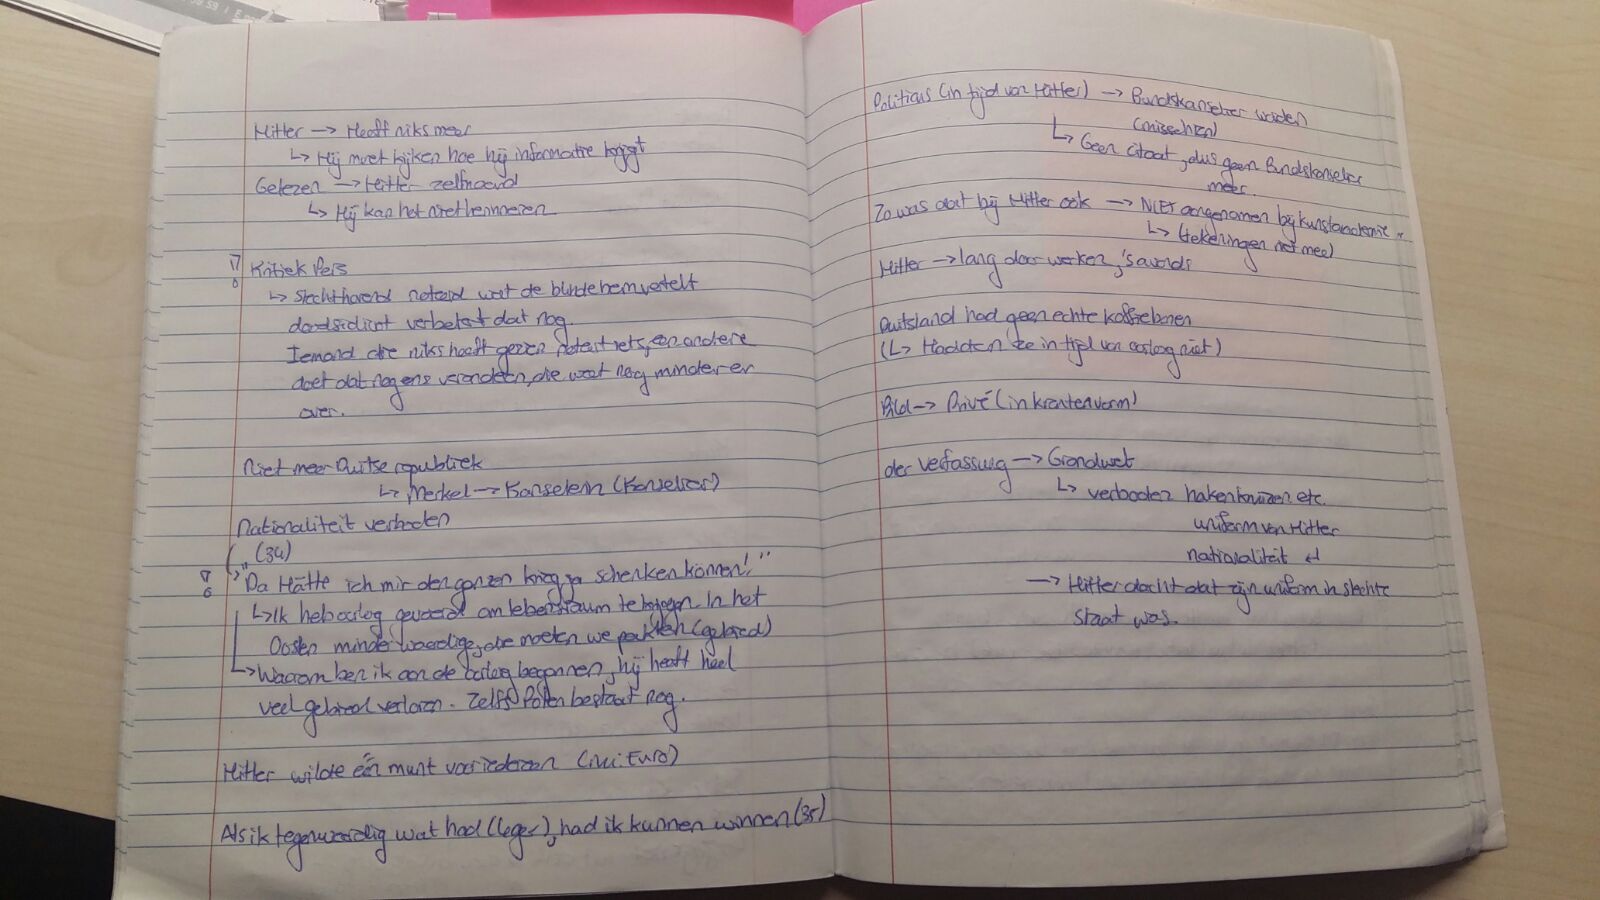 Hitler → Heeft niks meer
↳ Hij moet kijken hoe hij informatie krijgt
Gelezen → Hitler zelfmoord
↳ Hij kan het niet herinneren
Kritiek Pers
↳ Slechthorend noteerd wat de blinde hem vertelt
dordsidiot verbetert dat nog.
Iemand die niks heeft gezien noteert iets, een andere
doet dat nog ens veranderen, die weet nog minder er
over.
Niet meer Duitse republiek
↳ Merkel → Kanselerin (Kanselier)
Nationaliteit verboden
(34)
"Da Hätte ich mir den ganzen krieg ja schenken können!"
↳ Ik heb oorlog gevoerd om lebensraum te krijgen. In het
Oosten minderwaardige, die moeten we pakken (gebied)
→ Waarom ben ik aan de oorlog begonnen, hij heeft heel
veel gebied verloren. Zelfs Polen bestaat nog.
Hitler wilde één munt voor iedereen (nu: Euro)
Als ik tegenwoordig wat had (leger), had ik kunnen winnen (35)
Politicus (in tijd van Hitler) → Bundskanselier worden
(misschien)
↳ Geen citaat, dus geen Bundskanselier
meer
Zo was dat bij Hitler ook → NIET aangenomen bij kunstacademie
↳ (tekeningen niet mee)
Hitler → lang door werken, 's avonds
Duitsland had geen echte koffiebonen
(↳ Hadden ze in tijd van oorlog niet)
Bild → Privé (in krantenvorm)
der Verfassung → Grondwet
↳ verboden hakenkruizen etc.
uniform van Hitler
nationaliteit ↲
→ Hitler dacht dat zijn uniform in slechte
staat was.